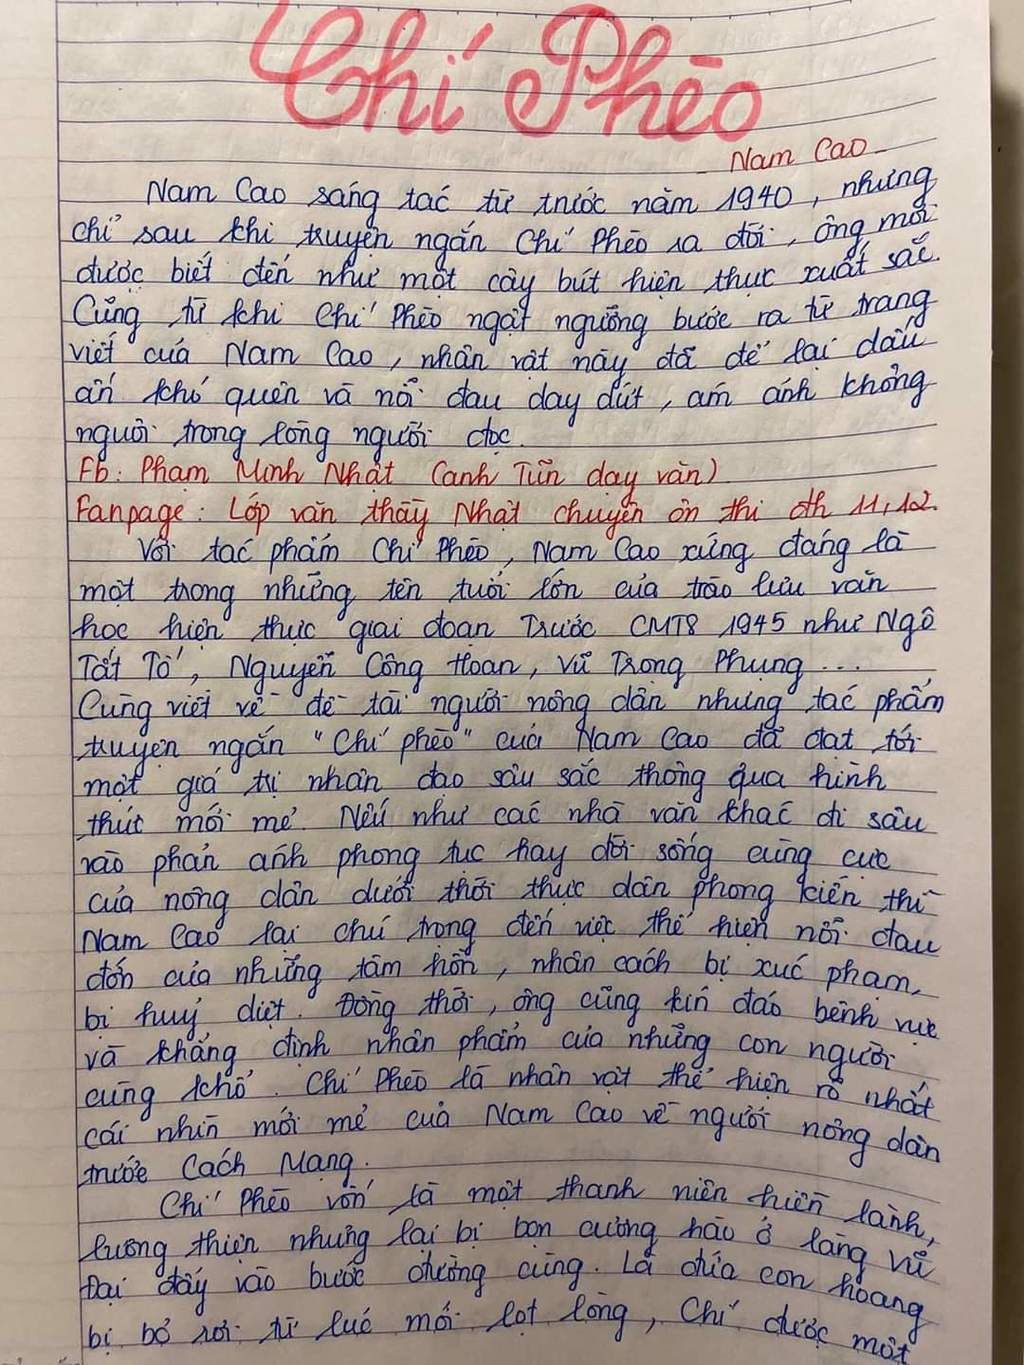 Chí Phèo
Nam Cao
Nam Cao sáng tác từ trước năm 1940, nhưng
chỉ sau khi truyện ngắn Chí Phèo ra đời, ông mới
được biết đến như một cây bút hiện thực xuất sắc.
Cũng từ khi Chí Phèo ngật ngưỡng bước ra từ trang
viết của Nam Cao, nhân vật này đã để lại dấu
ấn khó quên và nỗi đau day dứt, ám ảnh không
nguôi trong lòng người đọc.
Fb: Phạm Minh Nhật (anh Tũn dạy văn)
Fanpage: Lớp văn thầy Nhật chuyên ôn thi đh 11,12.
Với tác phẩm Chí Phèo, Nam Cao xứng đáng là
một trong những tên tuổi lớn của trào lưu văn
học hiện thực giai đoạn Trước CMT8 1945 như Ngô
Tất Tố, Nguyễn Công Hoan, Vũ Trọng Phụng ...
Cùng viết về đề tài người nông dân nhưng tác phẩm
truyện ngắn "Chí phèo" của Nam Cao đã đạt tới
một giá trị nhân đạo sâu sắc thông qua hình
thức mới mẻ. Nếu như các nhà văn khác đi sâu
vào phản ánh phong tục hay đời sống cùng cực
của nông dân dưới thời thực dân phong kiến thì
Nam Cao lại chú trọng đến việc thể hiện nỗi đau
đớn của những tâm hồn, nhân cách bị xúc phạm,
bị huỷ diệt. Đồng thời, ông cũng kín đáo bênh vực
và khẳng định nhân phẩm của những con người
cùng khổ. Chí Phèo là nhân vật thể hiện rõ nhất
cái nhìn mới mẻ của Nam Cao về người nông dân
trước Cách Mạng.
Chí Phèo vốn là một thanh niên hiền lành,
lương thiện nhưng lại bị bọn cường hào ở làng Vũ
Đại đẩy vào bước đường cùng. Là đứa con hoang
bị bỏ rơi từ lúc mới lọt lòng, Chí được một